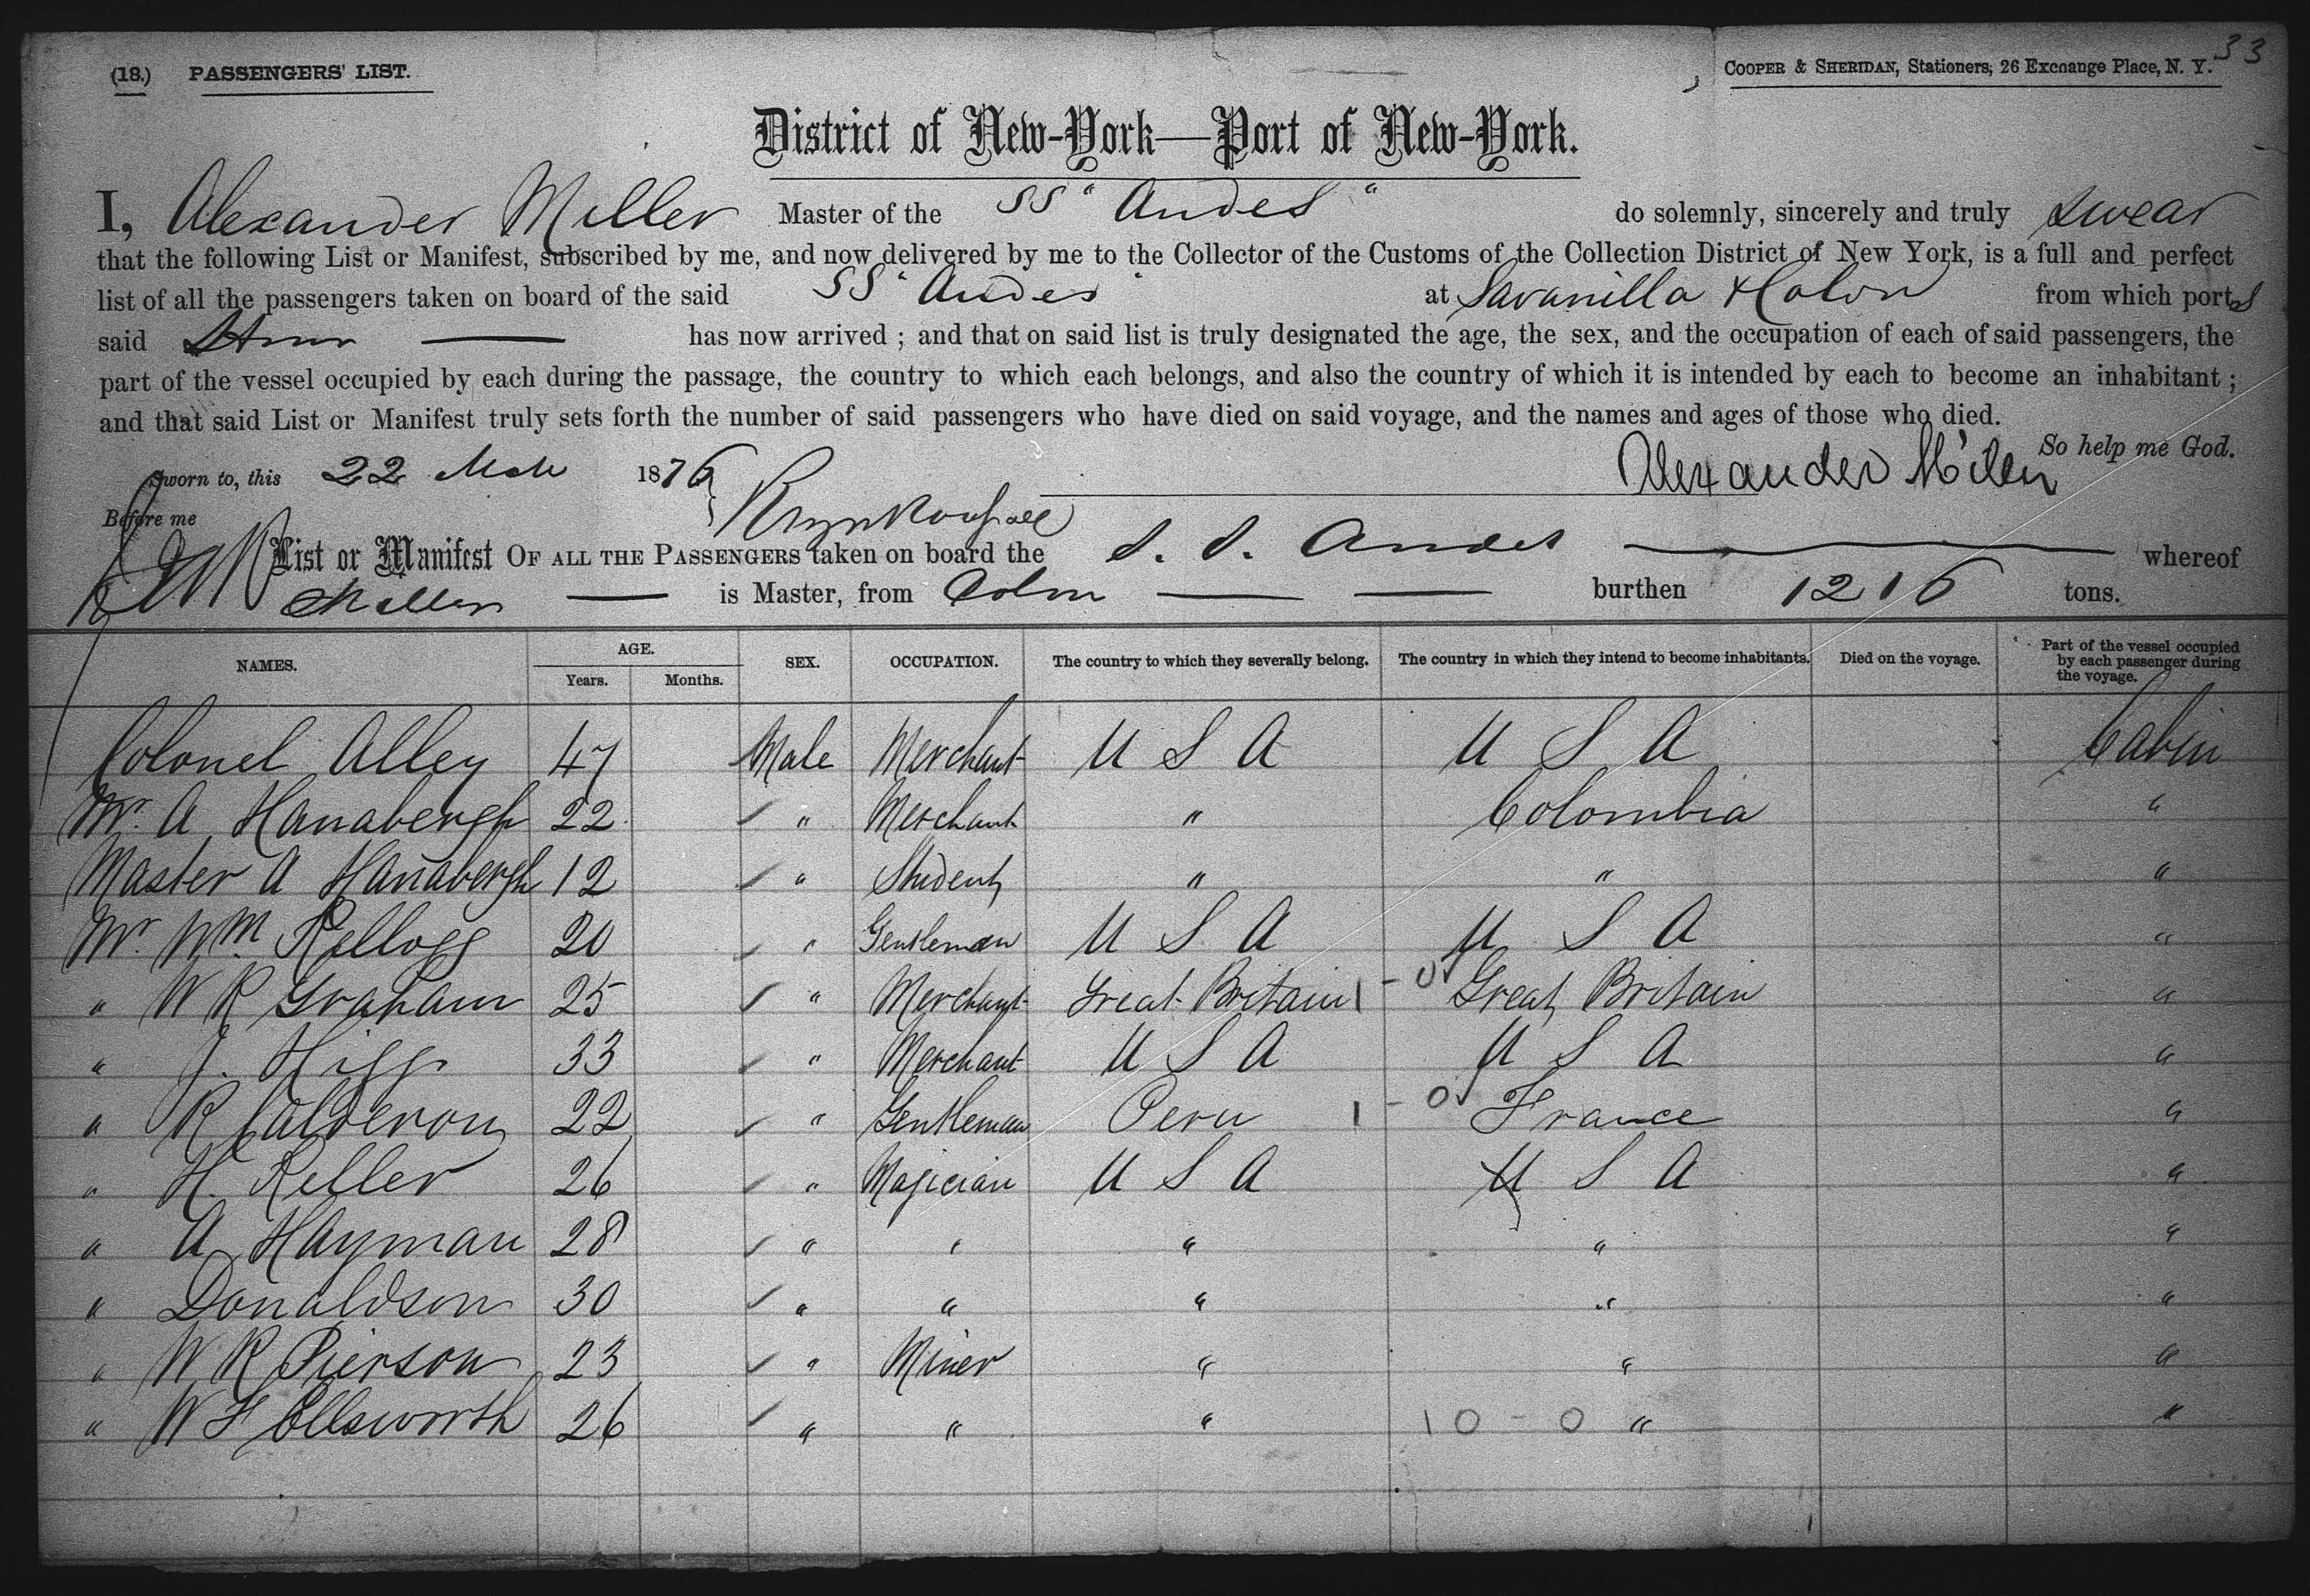 33
(18.) PASSENGERS' LIST. COOPER & SHERIDAN, Stationers, 26 Exchange Place, N. Y.
District of New-York—Port of New-York.
I, Alexander Miller Master of the SS "Andes" do solemnly, sincerely and truly swear
that the following List or Manifest, subscribed by me, and now delivered by me to the Collector of the Customs of the Collection District of New York, is a full and perfect
list of all the passengers taken on board of the said SS "Andes" at Savanilla & Colon from which ports
said Stmr has now arrived ; and that on said list is truly designated the age, the sex, and the occupation of each of said passengers, the
part of the vessel occupied by each during the passage, the country to which each belongs, and also the country of which it is intended by each to become an inhabitant ;
and that said List or Manifest truly sets forth the number of said passengers who have died on said voyage, and the names and ages of those who died.
So help me God.
Sworn to, this 22 Mch 1876 Alexander Miller
Before me
List or Manifest OF ALL THE PASSENGERS taken on board the S. S. Andes whereof
Miller is Master, from Colon burthen 1216 tons.
NAMES. AGE. Years. Months. SEX. OCCUPATION. The country to which they severally belong. The country in which they intend to become inhabitants. Died on the voyage. Part of the vessel occupied by each passenger during the voyage.
Colonel Alley 47 Male Merchant U S A U S A Cabin
Mr. A Hanabergh 22 " Merchant " Colombia "
Master A Hanabergh 12 " Student " " "
Mr Wm. Kellogg 20 " Gentleman U S A U S A "
" W R Graham 25 " Merchant Great Britain 1 - 0 Great Britain "
" J. Higg 33 " Merchant U S A U S A "
" R Calderon 22 " Gentleman Peru 1 - 0 France "
" H. Keller 26 " Magician U S A U S A "
" A Hayman 28 " " " " "
" Donaldson 30 " " " " "
" W R Pierson 23 " Miner " " "
" W F Ellsworth 26 " " " 10 - 0 " "